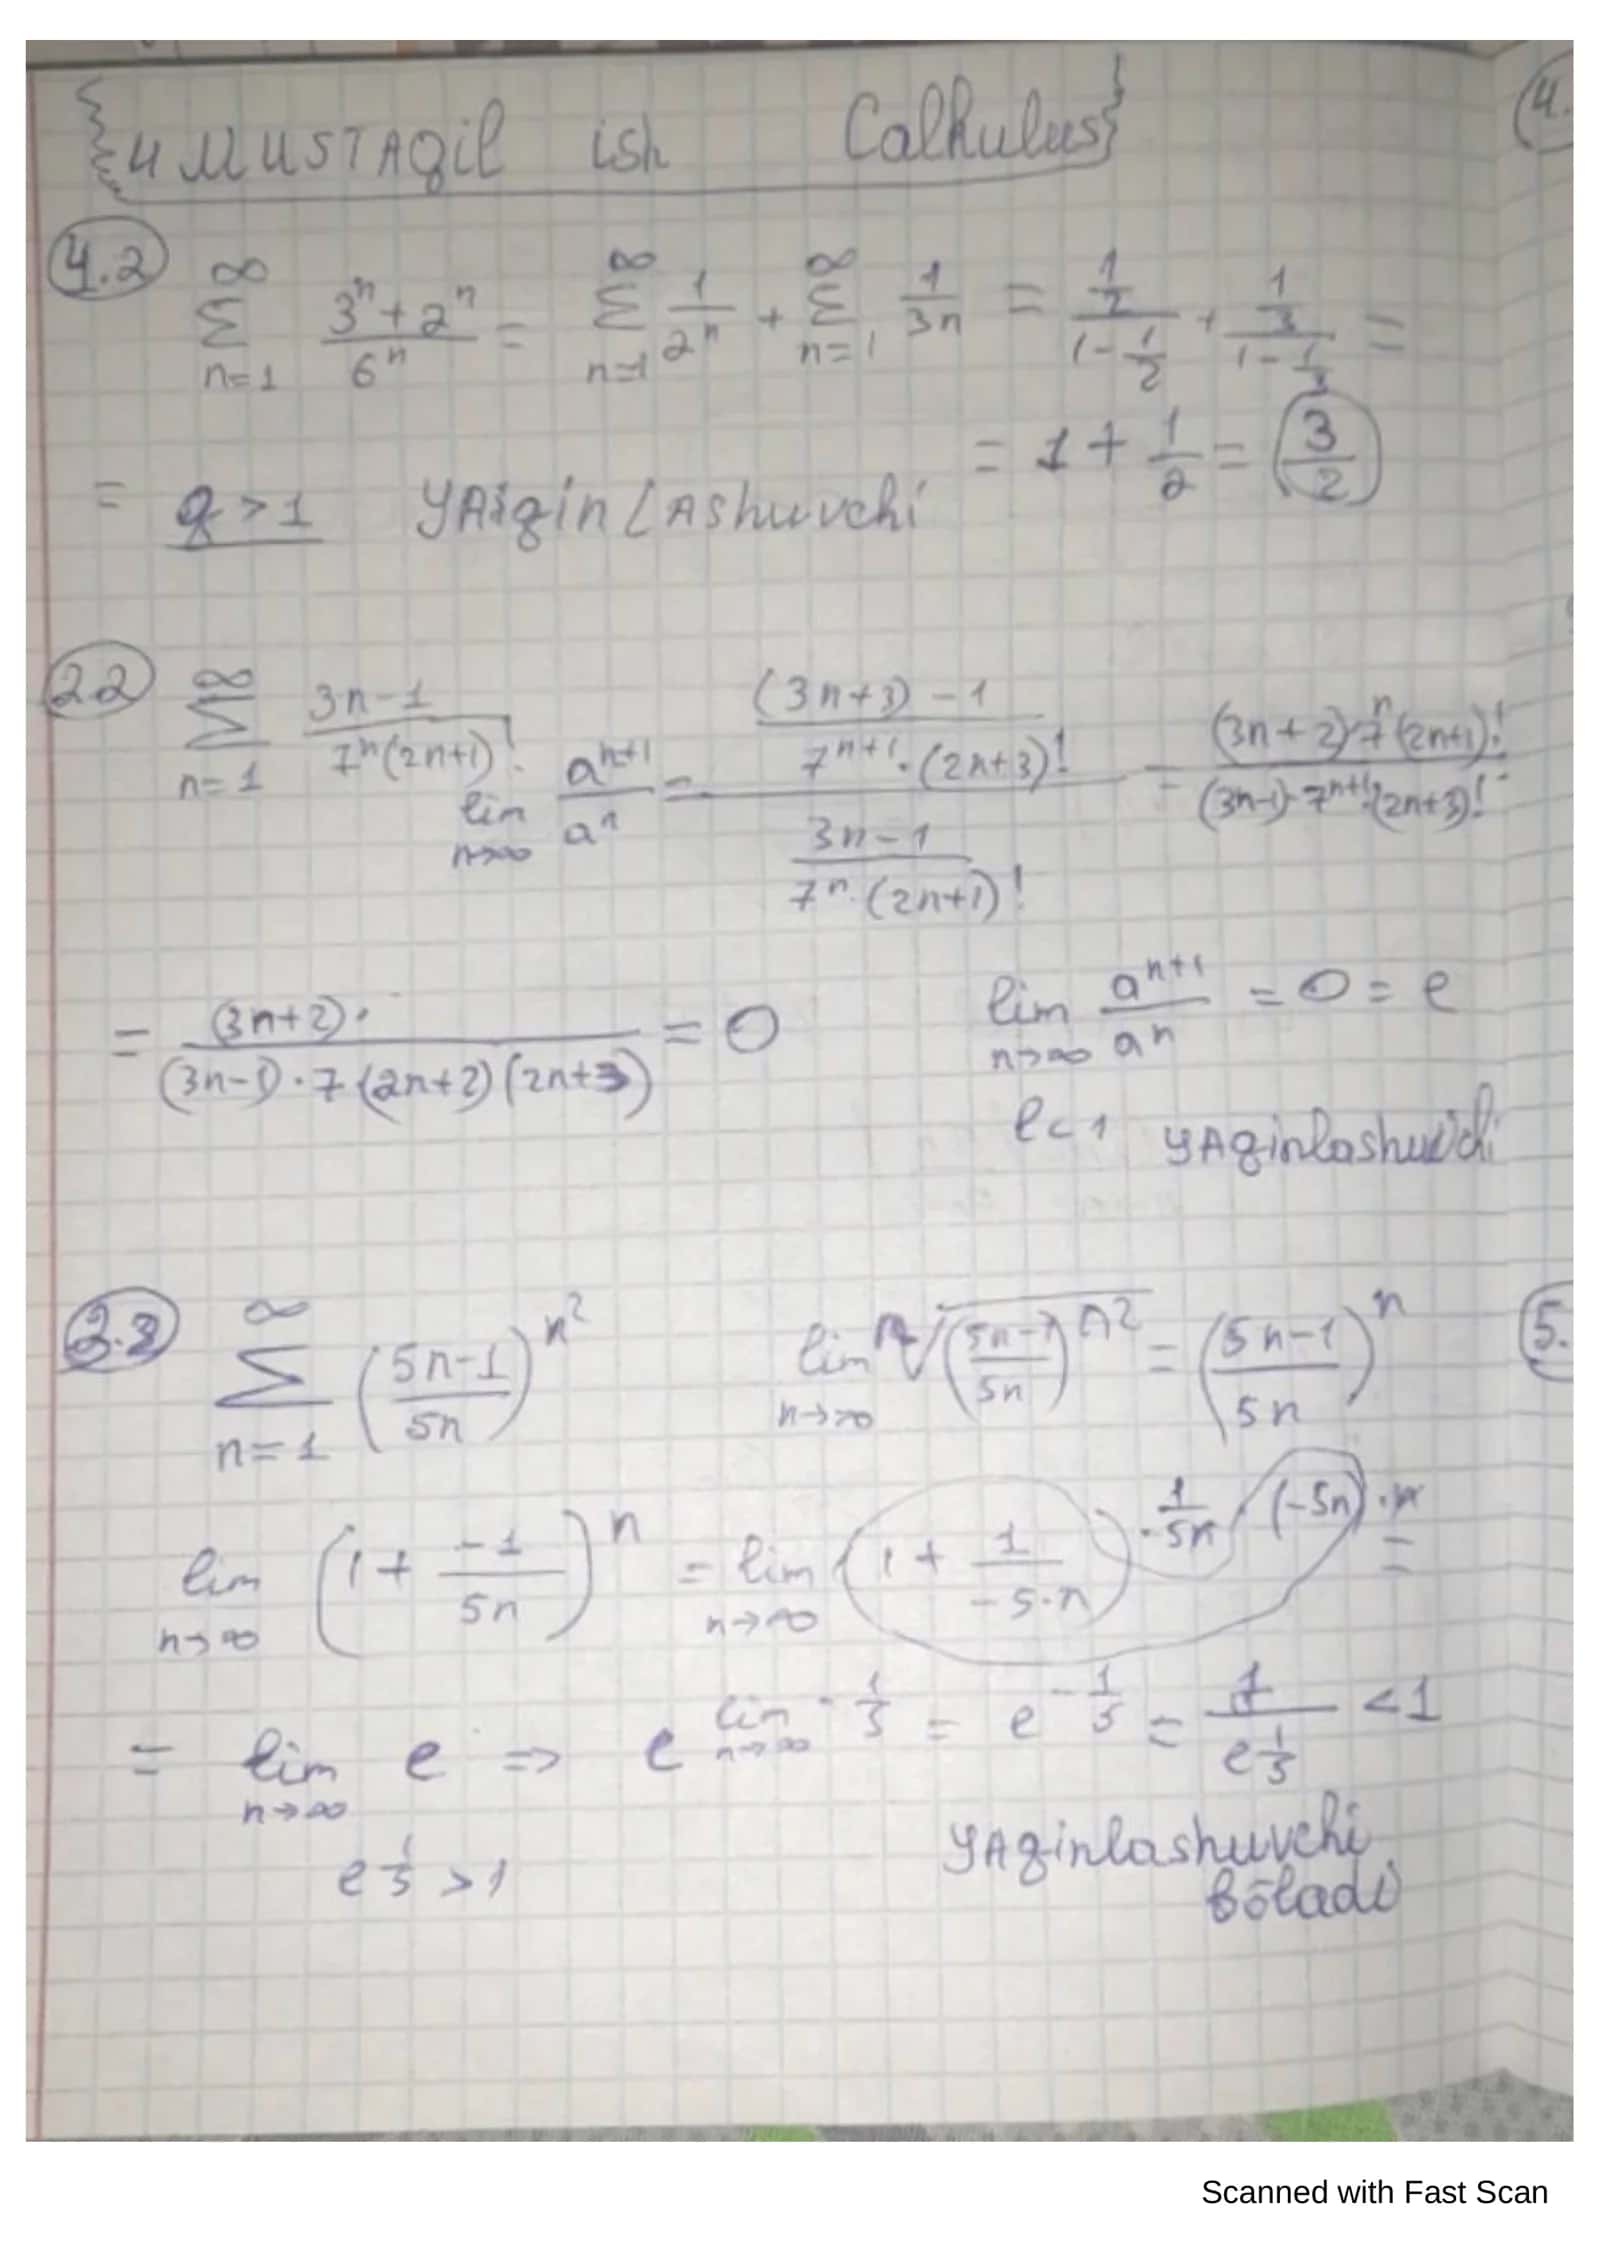 4 MUSTAqil ish Calkulus
4.2 ∞ Σ n=1 (3^n+2^n)/6^n = ∞ Σ n=1 1/2^n + ∞ Σ n=1 1/3n = (1/2)/(1-1/2) + (1/3)/(1-1/3) =
= 1 + 1/2 = 3/2
= q > 1 YAiqinLAshuvchi
2.2 ∞ Σ n=1 (3n-1)/(7^n(2n+1)!) lim n→∞ a^(n+1)/a^n = ((3n+3)-1)/(7^(n+1)·(2n+3)!) / (3n-1)/(7^n·(2n+1)!) = ((3n+2)·7^n(2n+1)!)/((3n-1)·7^(n+1)·(2n+3)!)
= (3n+2)·/((3n-1)·7·(2n+2)(2n+3)) = 0 lim n→∞ a^(n+1)/a^n = 0 = e
e < 1 YAqinlashuvchi
∞ Σ n=1 ((5n-1)/5n)^(n^2) lim n→∞ n√((5n-1)/5n)^(n^2) = ((5n-1)/5n)^n
lim n→∞ (1 + -1/5n)^n = lim n→∞ (1 + 1/(-5·n))^(-1/5n · (-5n) · n) =
= lim n→∞ e => e^(lim n→∞ -1/5) = e^(-1/5) = 1/e^(1/5) < 1
e^(1/5) > 1 YAqinlashuvchi
bōladi
(4.
(5.
Scanned with Fast Scan